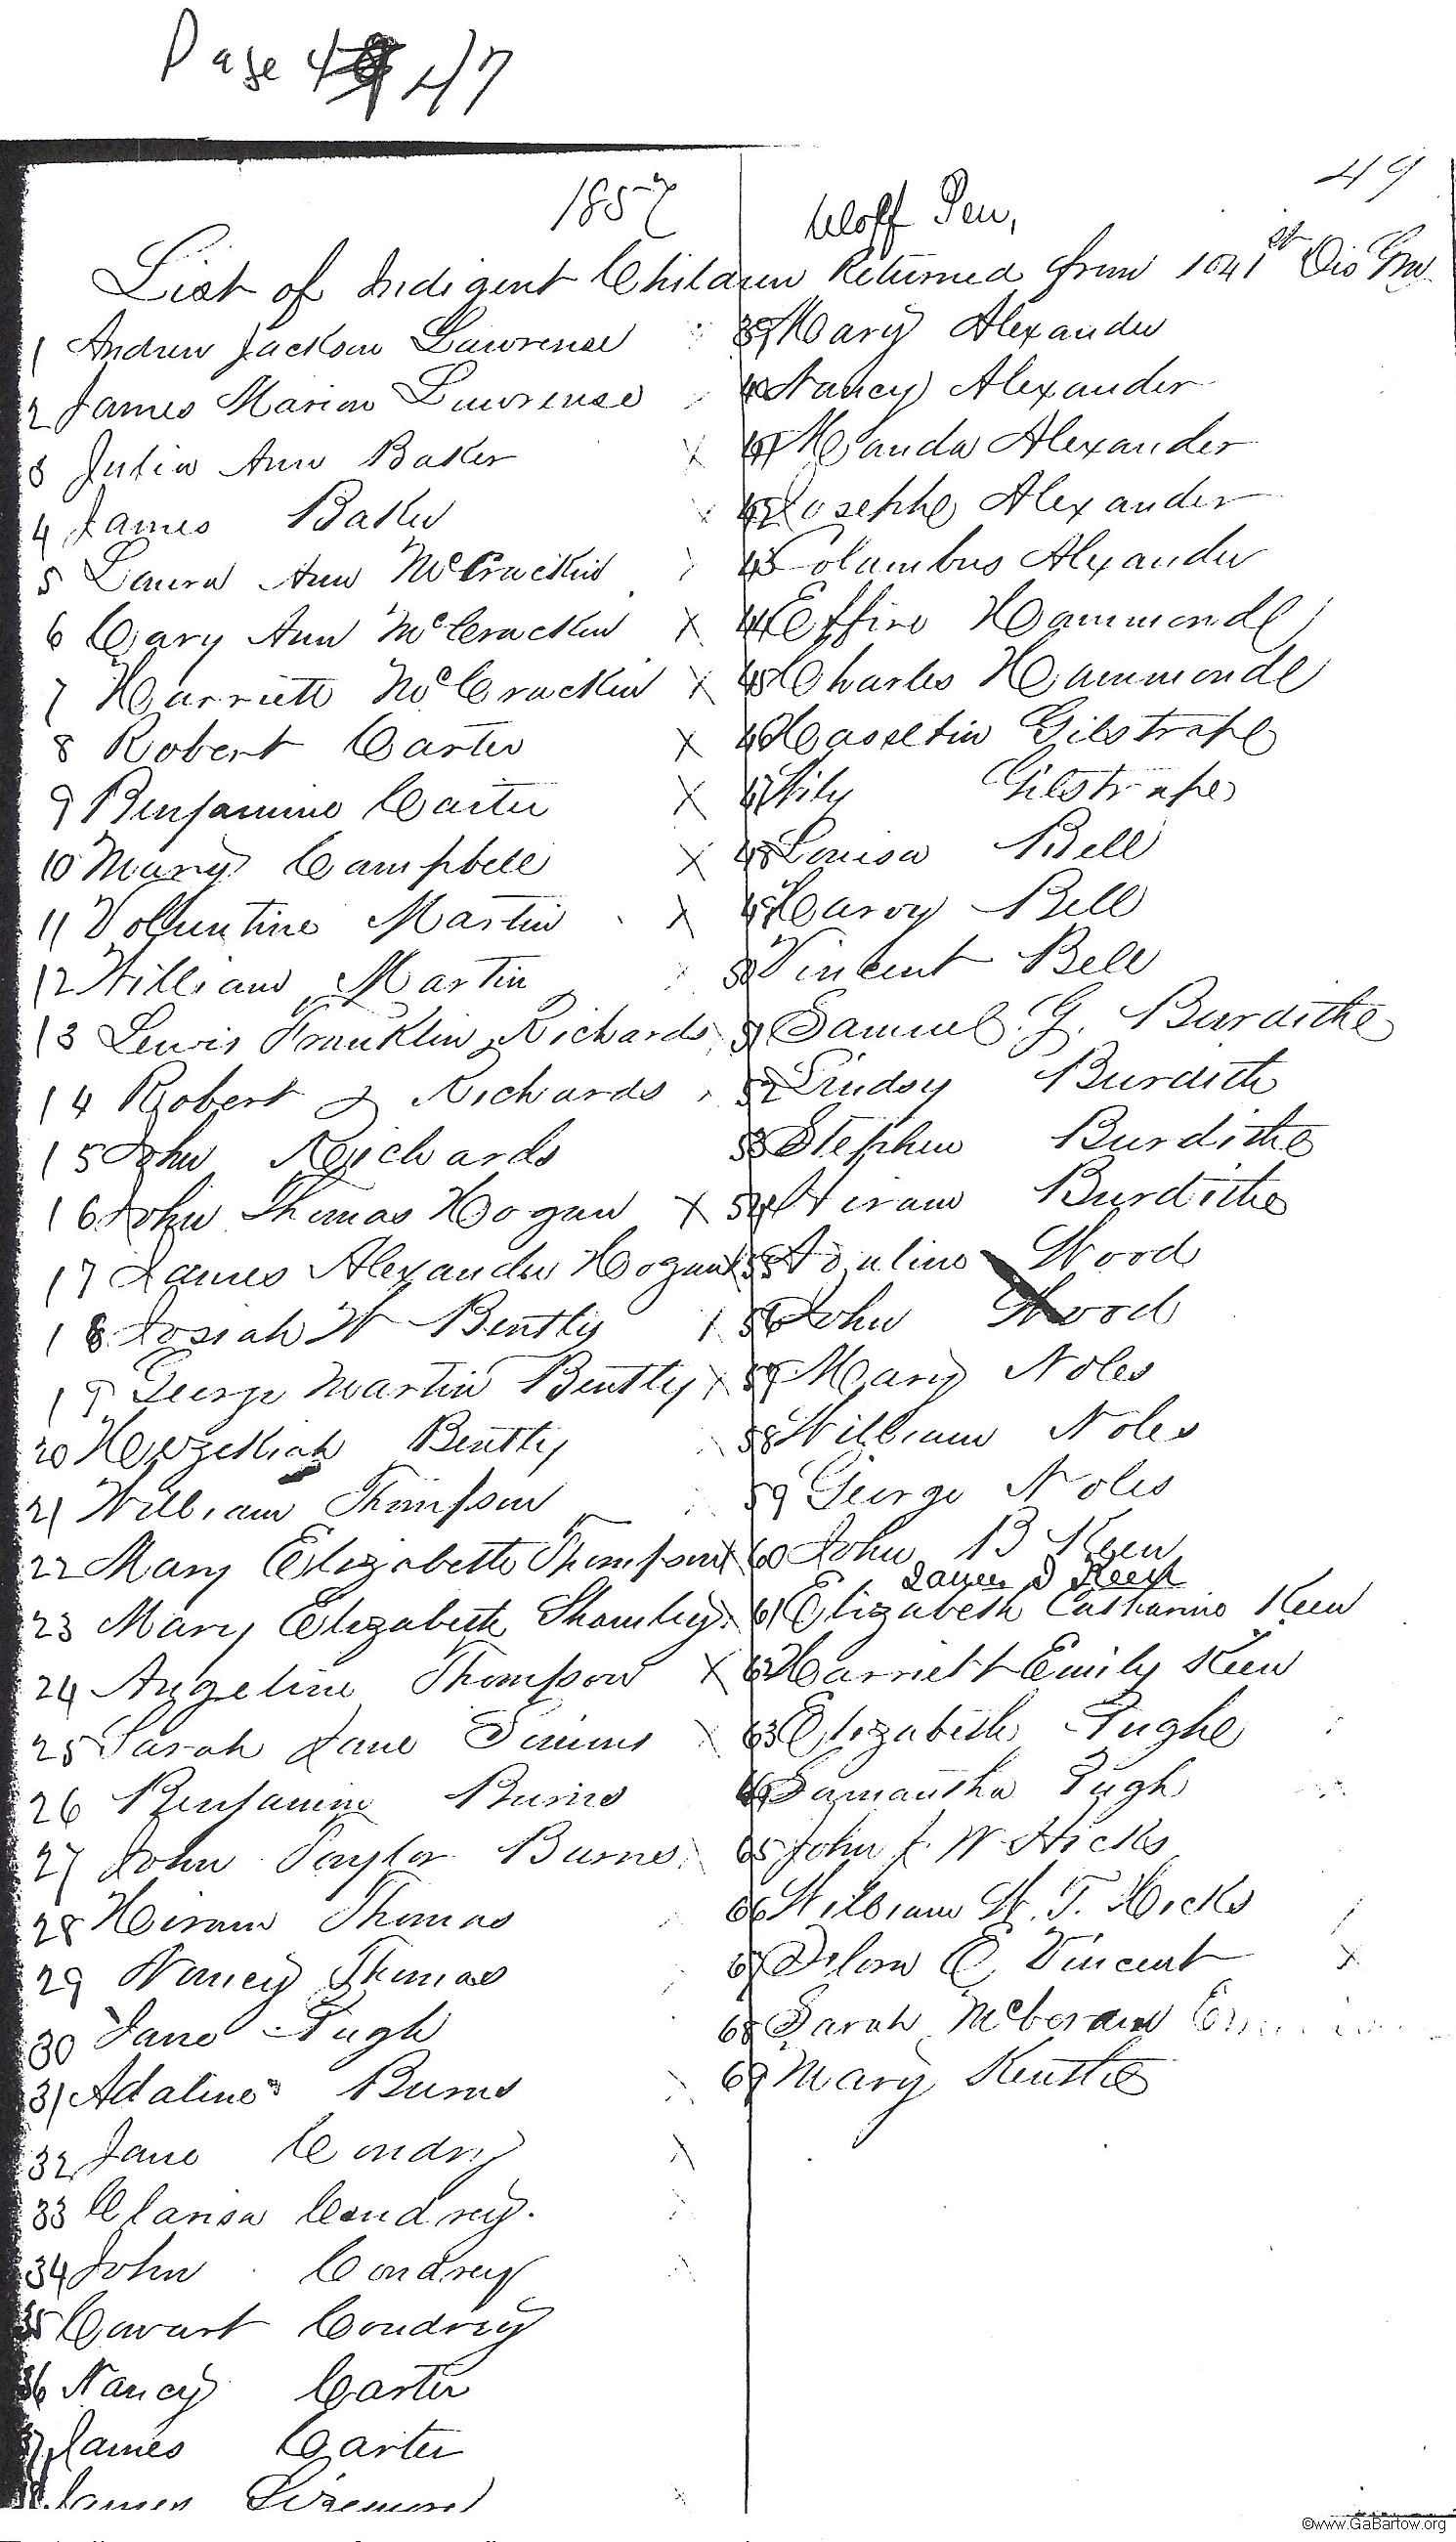 Page 47
49
1857
Woff Pen,
List of Indigent Children Returned from 1041st Dis G.M.
1 Andrew Jackson Lawrence
2 James Marion Lawrence
3 Julia Ann Baker
4 James Baker
5 Laura Ann McCrackin
6 Cary Ann McCrackin
7 Harriett McCrackin X
8 Robert Carter X
9 Benjamine Carter X
10 Mary Campbell X
11 Volluntine Martin X
12 William Martin
13 Lewis Franklin Richards
14 Robert J Richards
15 John Richards
16 John Thomas Hogan X
17 James Alexander Hogan X
18 Josiah W Bently
19 George Martin Bently X
20 Hezekiah Bently
21 William Thompson
22 Mary Elizabeth Thompson X
23 Mary Elizabeth Shamley
24 Angeline Thompson X
25 Sarah Jane Simms
26 Benjamine Burns
27 John Taylor Burns
28 Hiram Thomas
29 Nancy Thomas
30 Jane Pugh
31 Adaline Burns
32 Jane Condry
33 Clarisa Condrey.
34 John Condrey
35 Cowart Condrey
36 Nancy Carter
37 James Carter
38 James Sizemore
39 Mary Alexander
40 Nancy Alexander
41 Manda Alexander
42 Josephe Alexander
43 Columbus Alexander
44 Effire Hammonde
45 Charles Hammonde
46 Hasseltin Gilstrape
47 Gilstrape
48 Louisa Bell
49 Harvy Bell
50 Vincent Bell
51 Samuel G. Burdithe
52 Lindsy Burdith
53 Stephen Burdithe
54 Hiram Burdithe
55 Wood
56 John Wood
57 Mary Noles
58 William Noles
59 George Noles
60 John B Keen
James D Keen
61 Elizabeth Catharine Keen
62 Harriett Emily Keen
63 Elizabeth Pughe
64 Samantha Pugh
65 John F. W Hicks
66 William W. T. Hicks
67 E Vincent X
68 Sarah
69 Mary
©www.GaBartow.org